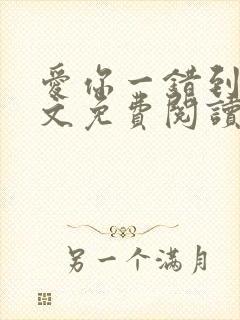 爱你一錯到
文免費閱讀
另一个满月